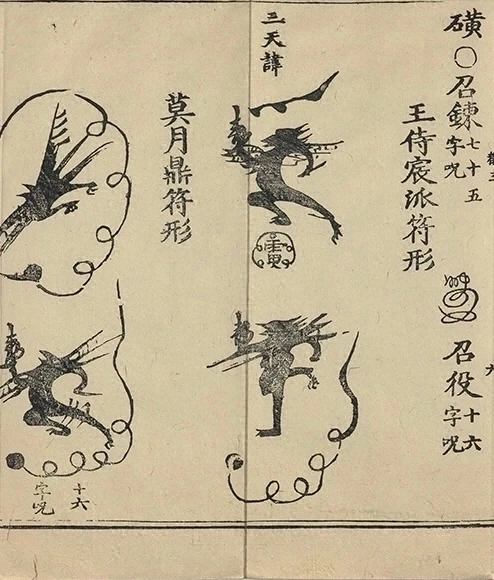 磺〇召鍊七十五字咒
召役十六字咒
王侍宸派符形
三天諱
莫月鼎符形
十六字咒